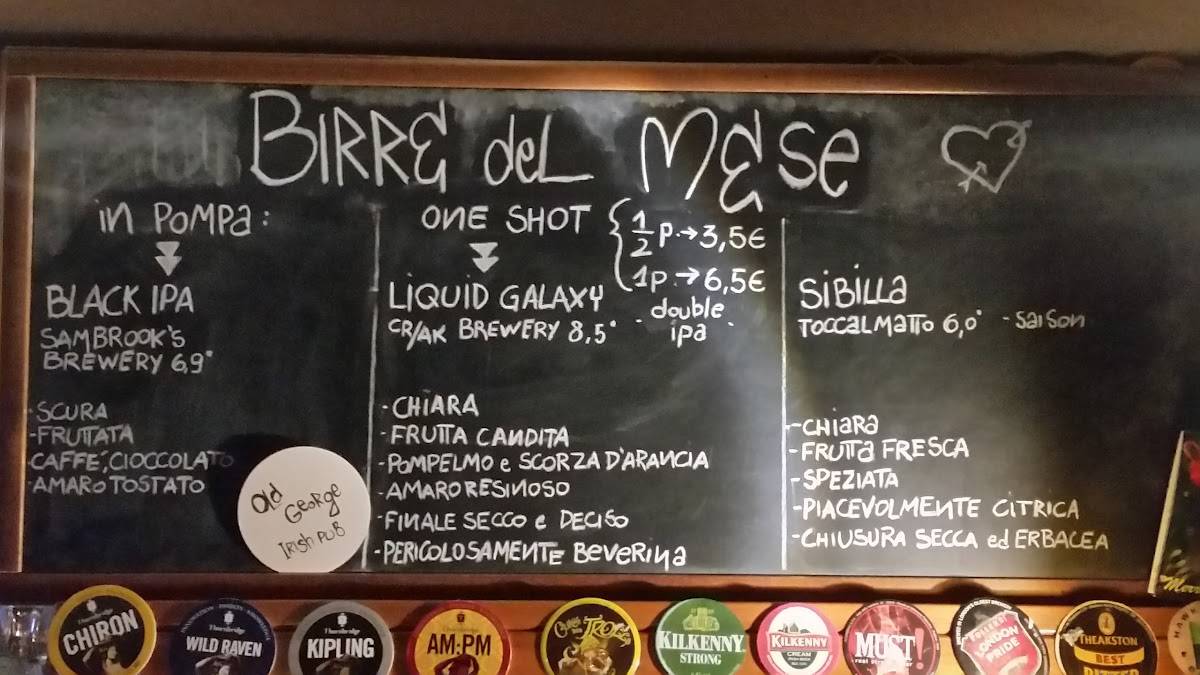 BIRRE del MESE
in POMPA:
BLACK IPA
SAMBROOK'S
BREWERY 6,9°
-SCURA
-FRUTTATA
-CAFFE', CIOCCOLATO
-AMARO TOSTATO
Old
George
Irish PUB
ONE SHOT
1/2 P.→3,5€
1P.→6,5€
LIQUID GALAXY
CR/AK BREWERY 8,5° - double
ipa -
-CHIARA
-FRUTTA CANDITA
-POMPELMO e SCORZA D'ARANCIA
-AMARO RESINOSO
-FINALE SECCO e DECISO
-PERICOLOSAMENTE BEVERINA
SIBILLA
TOCCALMATTO 6,0° - SAISON
-CHIARA
-FRUTTA FRESCA
-SPEZIATA
-PIACEVOLMENTE CITRICA
-CHIUSURA SECCA ed ERBACEA
Thornbridge
CHIRON
Thornbridge
WILD RAVEN
Thornbridge
KIPLING
AM:PM
KILKENNY
STRONG
KILKENNY
CREAM
MUST
FULLER'S
LONDON
PRIDE
THEAKSTON
BEST
BITTER